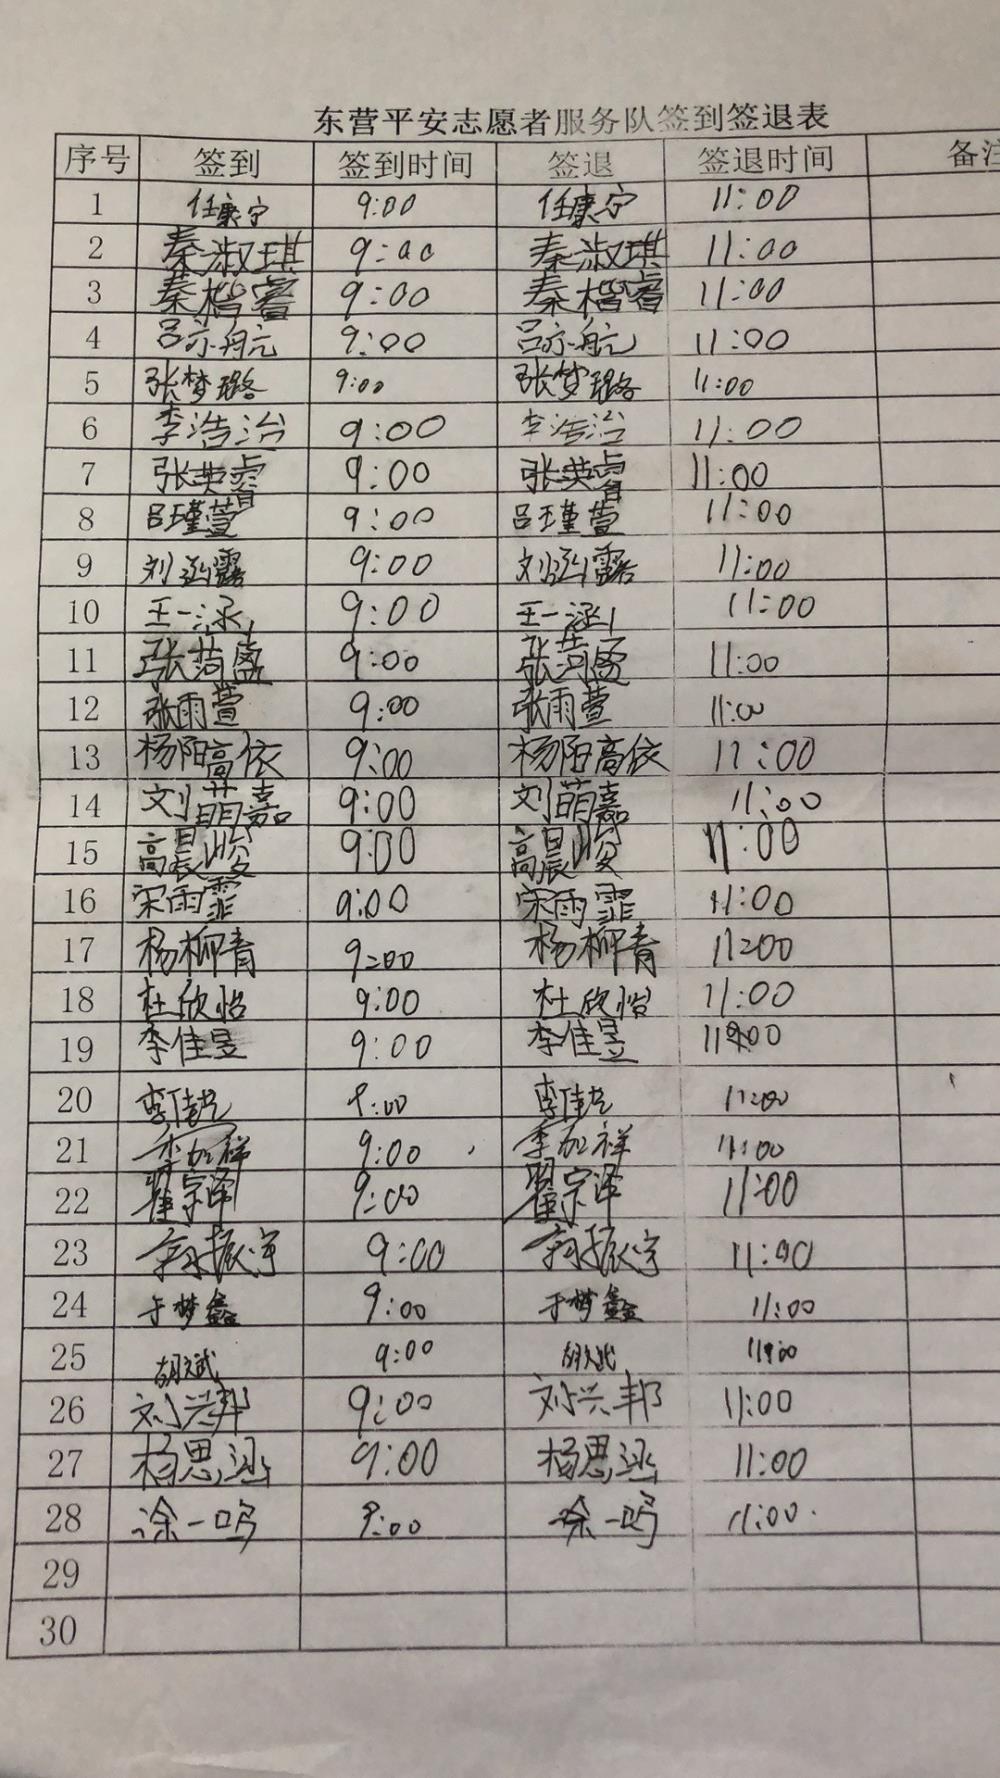 东营平安志愿者服务队签到签退表
序号 签到 签到时间 签退 签退时间 备注
1 任康宁 9:00 任康宁 11:00
2 秦淑琪 9:00 秦淑琪 11:00
3 秦楷睿 9:00 秦楷睿 11:00
4 吕亦航 9:00 吕亦航 11:00
5 张梦璐 9:00 张梦璐 11:00
6 李浩治 9:00 李浩治 11:00
7 张英睿 9:00 张英睿 11:00
8 吕瑾萱 9:00 吕瑾萱 11:00
9 刘涵露 9:00 刘涵露 11:00
10 王一涵 9:00 王一涵 11:00
11 9:00 11:00
12 张雨萱 9:00 张雨萱 11:00
13 杨阳高依 9:00 杨阳高依 11:00
14 刘萌嘉 9:00 刘萌嘉 11:00
15 高晨峻 9:00 高晨峻 11:00
16 宋雨霏 9:00 宋雨霏 11:00
17 杨柳青 9:00 杨柳青 11:00
18 杜欣怡 9:00 杜欣怡 11:00
19 李佳昱 9:00 李佳昱 11:00
20 9:00 11:00
21 李加祥 9:00 李加祥 11:00
22 翟宗泽 9:00 翟宗泽 11:00
23 9:00 11:00
24 于梦鑫 9:00 于梦鑫 11:00
25 胡文斌 9:00 11:00
26 刘兴邦 9:00 刘兴邦 11:00
27 杨思涵 9:00 杨思涵 11:00
28 涂一鸣 9:00 涂一鸣 11:00
29
30